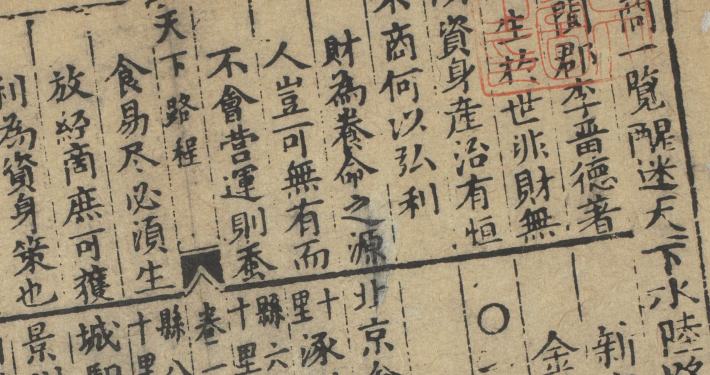 商一覽醒迷天下水陸路
閩郡李晋德著
生於世非財無
資身產治有恒
商何以弘利
財為養命之源
人豈可無有而
不會營運則蚕
天下路程
食易尽必湏生
放經商庶可獲
利為資身策也
新
金
○
北京
十涿
里
縣六
十里
卷一
縣八
十里
城
景